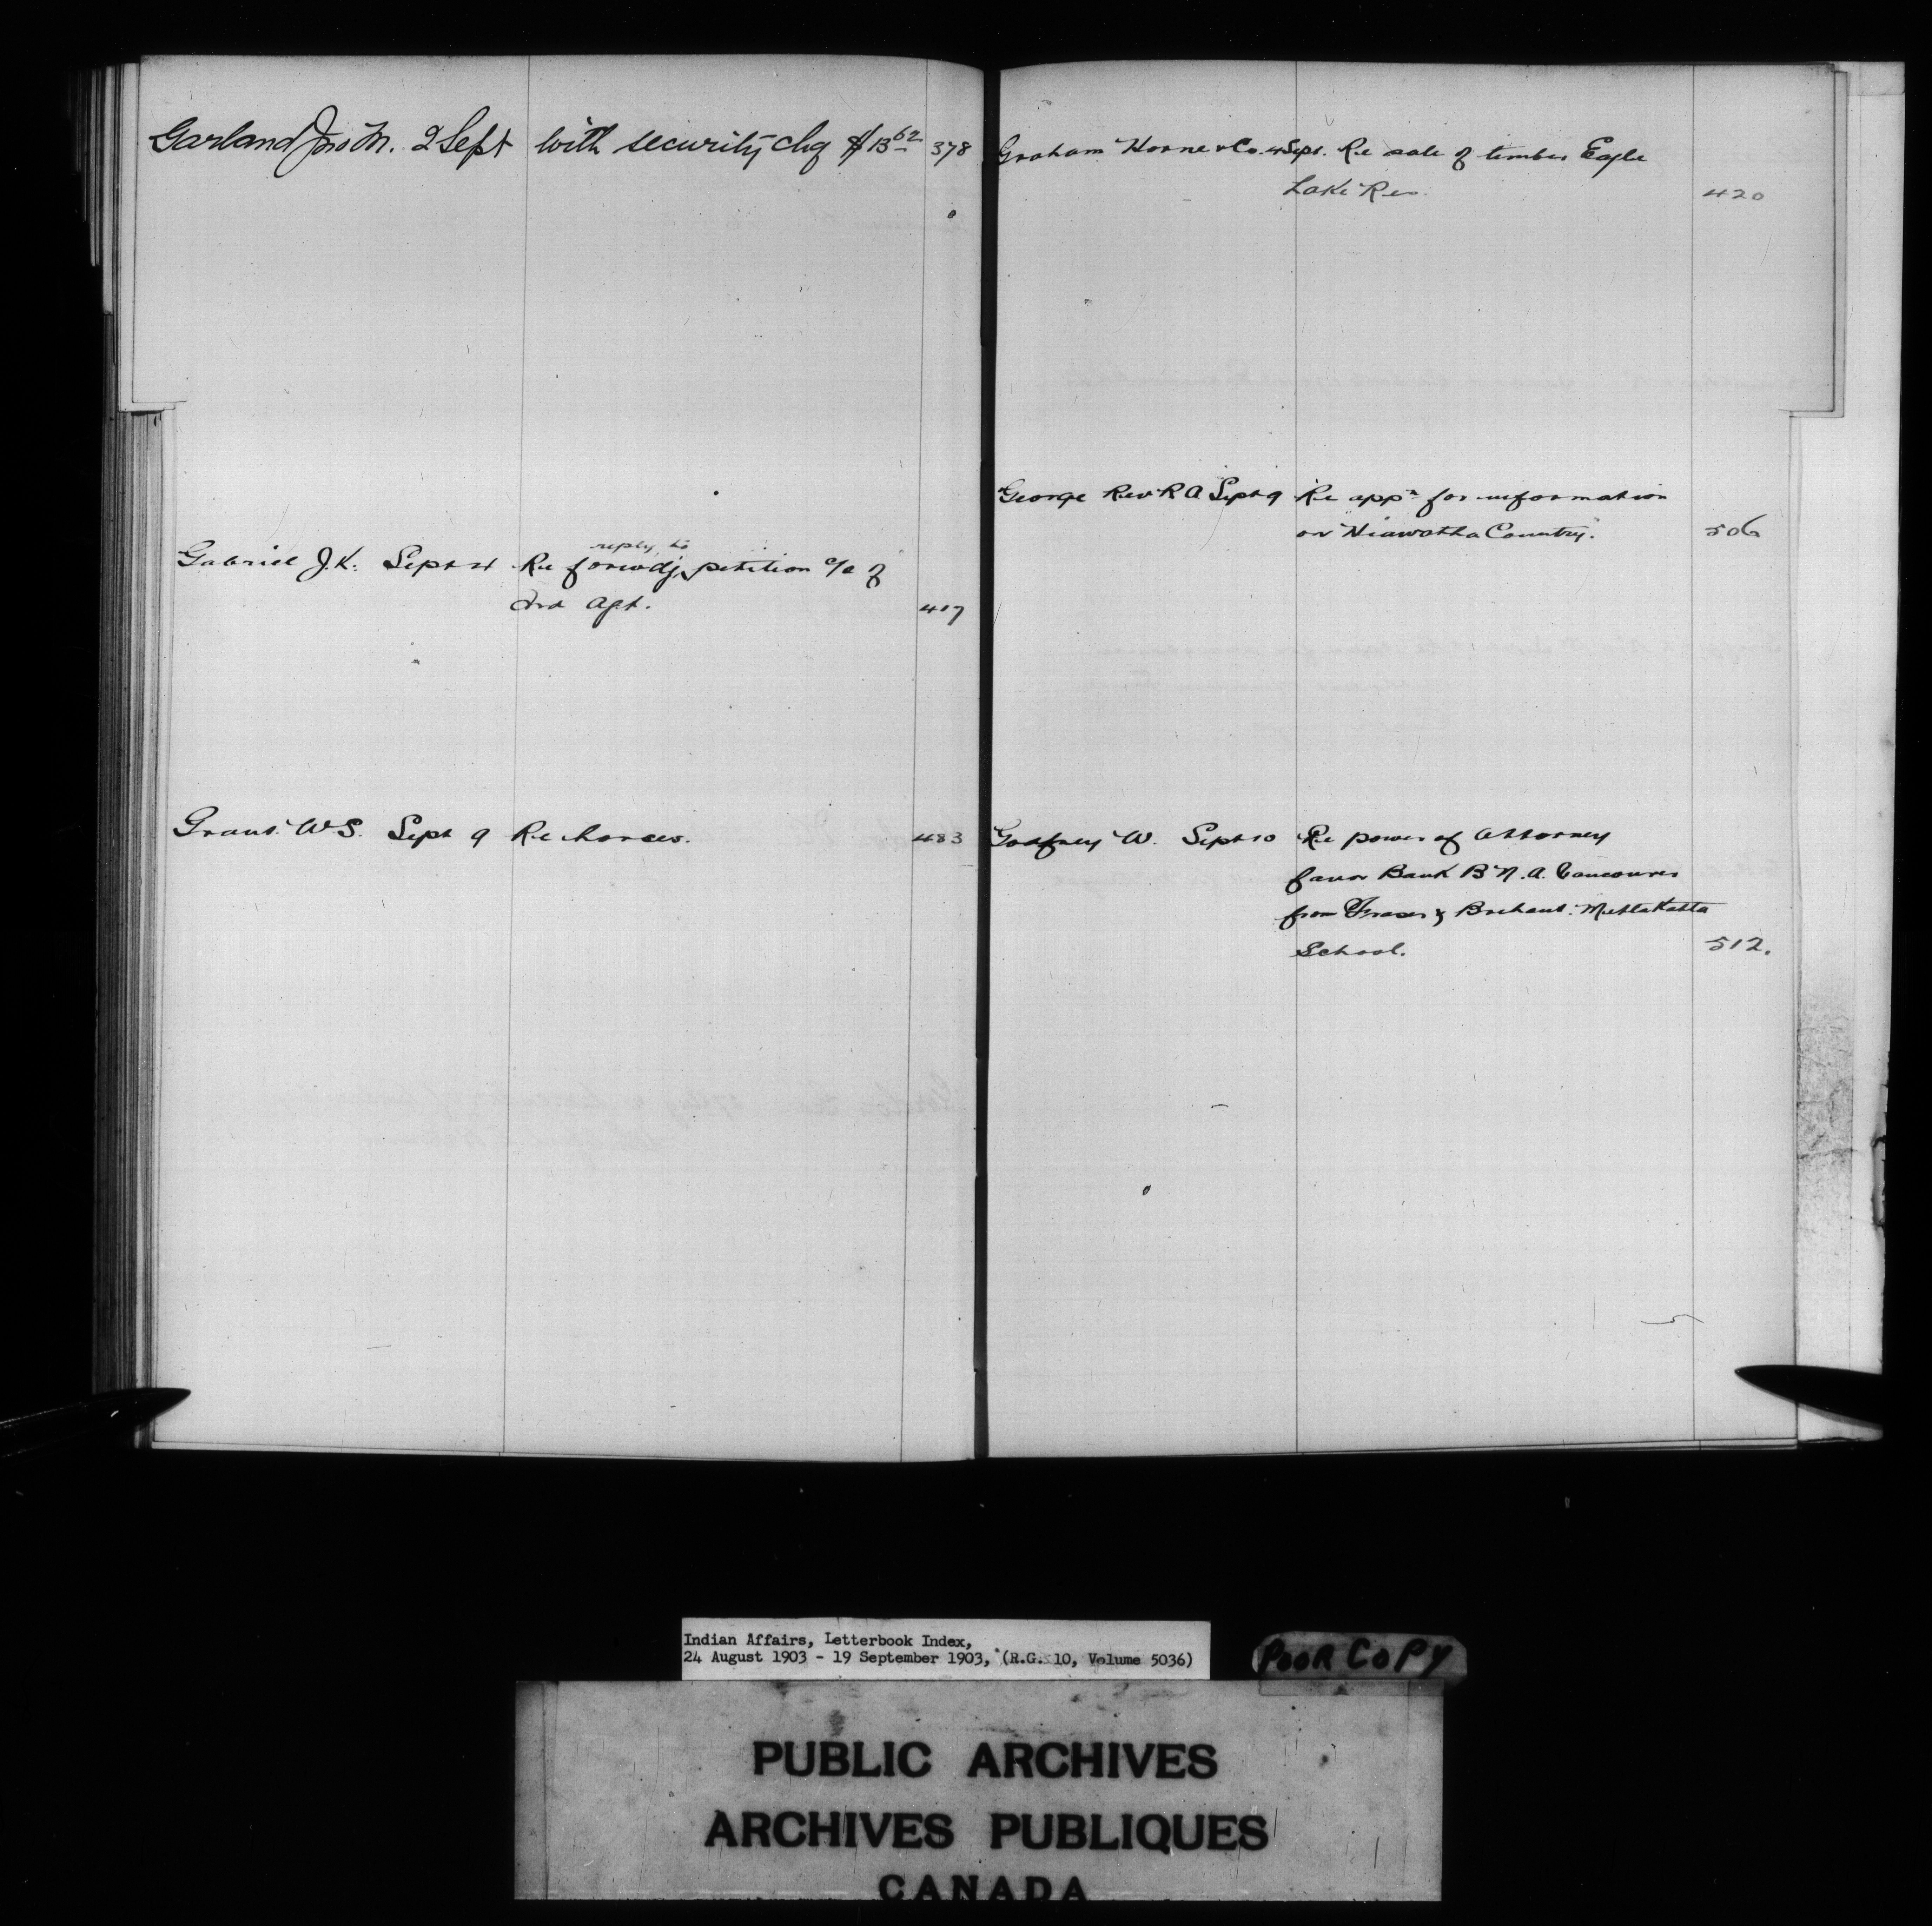 Garland Jno M. 2 Sept with security chq $13 62 378
Gabriel J.K. Sept 4 Re forwdg reply to petition c/o of
Ind Agt. 417
Grant W S. Sept 9 Re horses. 483
Graham Horne & Co. 4 Sept. Re sale of timber Eagle
Lake Res. 420
George Rev R A Sept 9 Re appn for information
on "Hiawatha Country." 506
Godfrey W. Sept 10 Re power of Attorney
favor Bank B.N.A. Vancouver
from Fraser & Brehaut. Metlakatla
School. 512.
Indian Affairs, Letterbook Index,
24 August 1903 - 19 September 1903, (R.G. 10, Volume 5036)
POOR COPY
PUBLIC ARCHIVES
ARCHIVES PUBLIQUES
CANADA